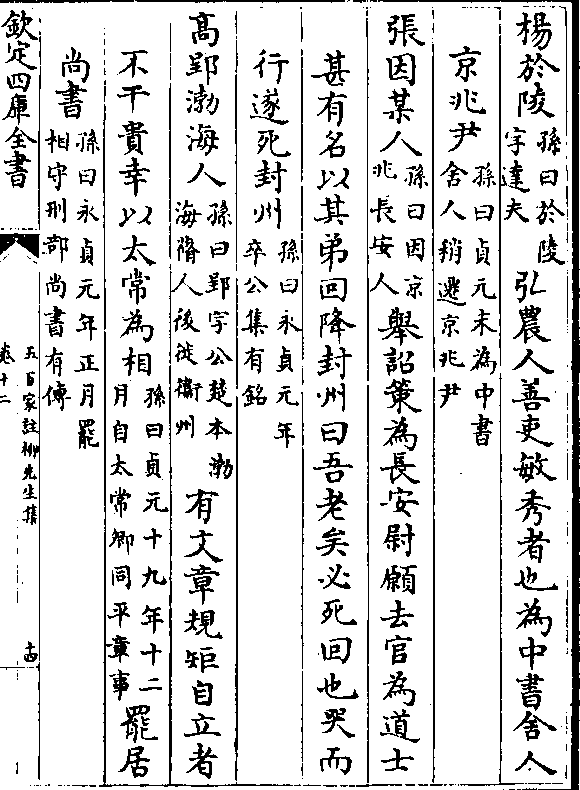 楊於陵孫曰於陵字達夫弘農人善吏敏秀者也為中書舍人
京兆尹孫曰貞元末為中書舍人稍遷京兆尹
張因某人孫曰因京兆長安人舉詔策為長安尉願去官為道士
甚有名以其弟回降封州曰吾老矣必死回也哭而
行遂死封州孫曰永貞元年卒公集有銘
高郢渤海人孫曰郢字公楚本渤海人後徙衛州有文章規矩自立者
不干貴幸以太常為相孫曰貞元十九年十二月自太常卿同平章事罷居
尚書孫曰永貞元年正月罷相守刑部尚書有傳
欽定四庫全書
五百家註柳先生集
卷十二
十四